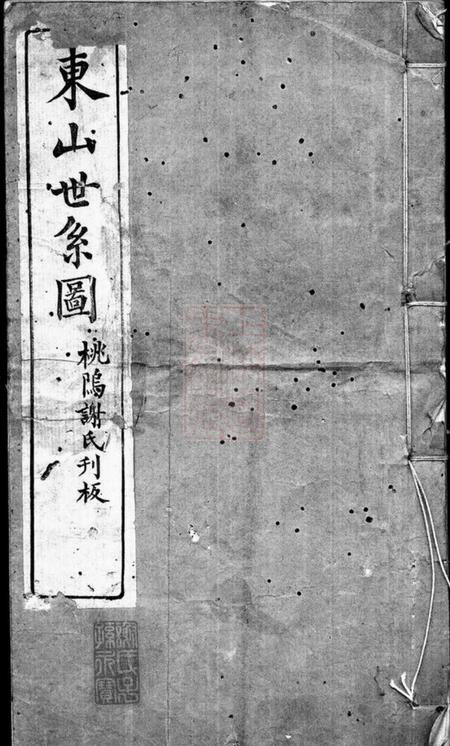 東山世系圖
桃隖謝氏刊板